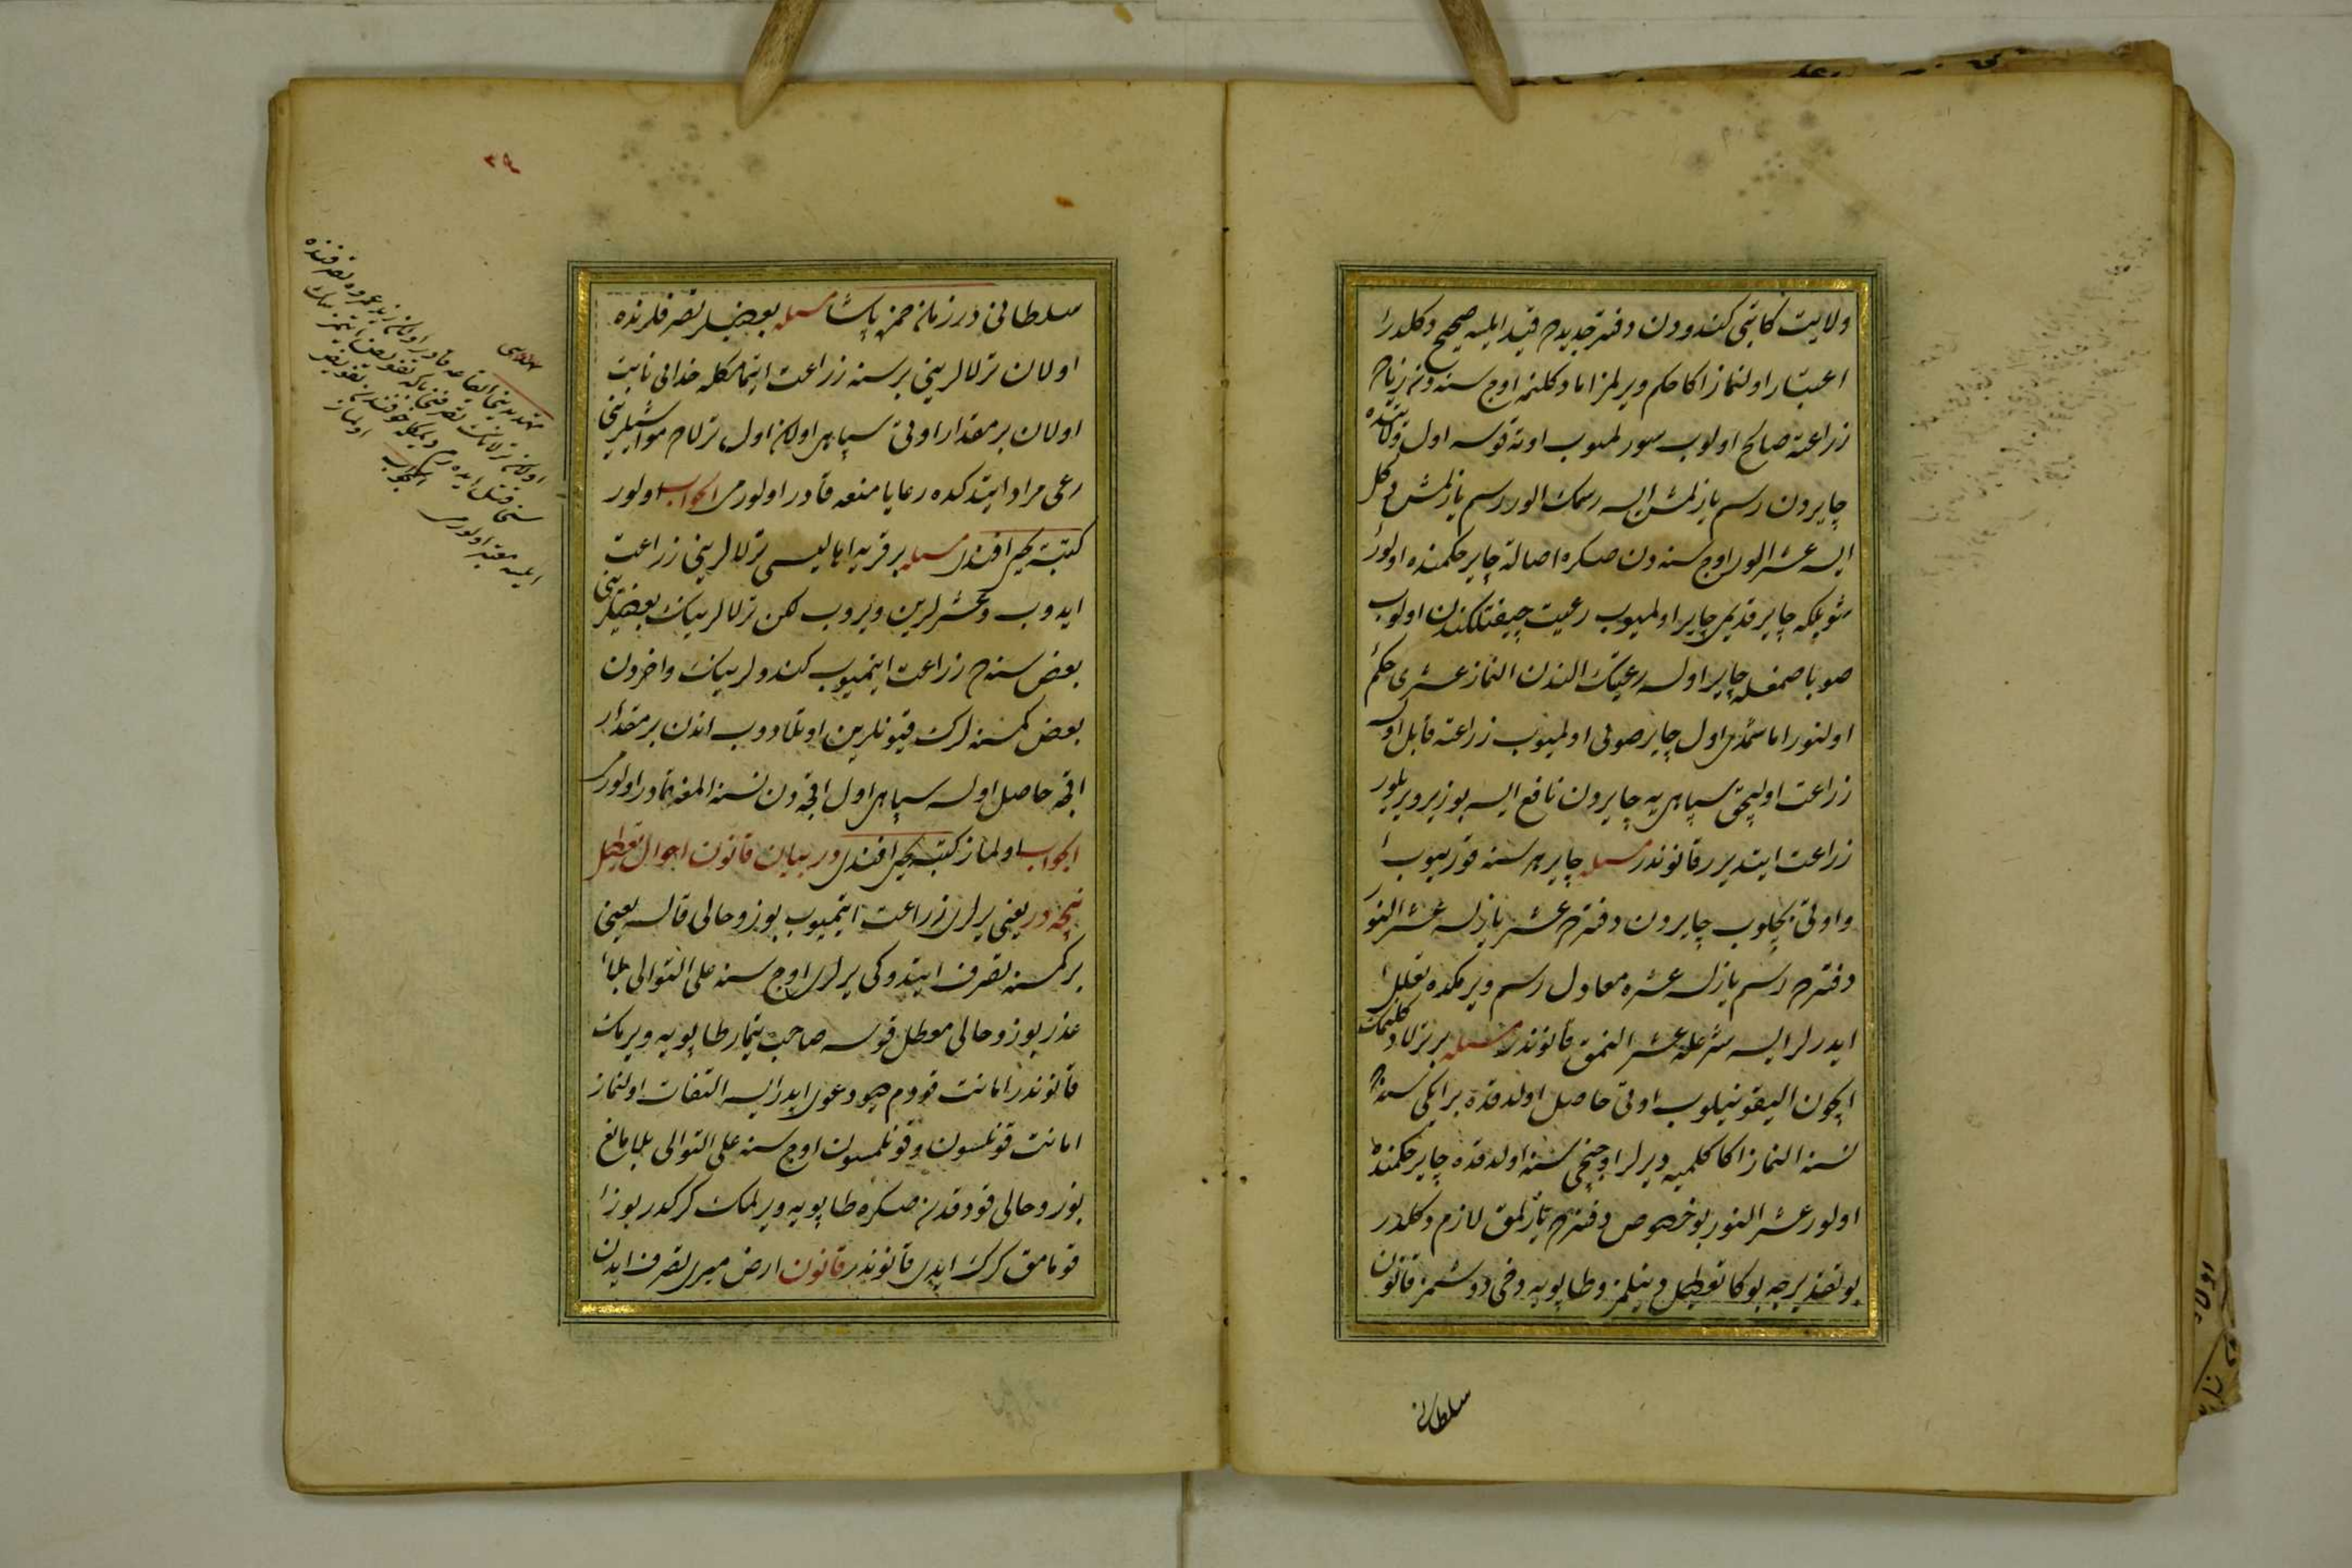 ولايت كاتبى كندودن دفتر جديده قيد ايلسه صحيح دكلدر
اعتبار اولنماز اكا حكم ويرلمز اما دكلنمه اوج سنه دن زياده
زراعته صالح اولوب سورلميوب اوته قوسه اول وقتده
چايردن رسم يازلمش ايسه رسمك الور رسم يازلمش دكل
ايسه عشر الور اوج سنه دن صكره اصالة چاير حكمنده اولور
شويلكه چاير قديمى چاير اولميوب رعيت چيفتلكندن اولوب
صو باصمغله چاير اولسه رعيتك الندن النماز عشرى حكم
اولنور اما شمدى اول چاير صولى اولميوب زراعته قابل اولسه
زراعت اوليجق سپاهى يه چايردن نافع ايسه بوزيرويريلور
زراعت ايتديرر قانوندر مسئله چاير هر سنه قورييوب
واوتى بچلوب چايردن دفترده عشر يازلسه عشر النور
دفترده رسم يازلسه عشره معادل رسم ويرمكده تعلل
ايدرلر ايسه شرعله عشر النمق قانوندر مسئله بر ترلا دكلنمك
ايچون اليقونيلوب اوتى حاصل اولدقده بر ايكى سنه
نسنه النماز اكا كلميه ديرلر اوچنجى سنه اولدقده چاير حكمنده
اولور عشر النور بو خصوص دفترده يازلمق لازم دكلدر
بو تقديرجه بوكا تعطيل دينلمز وطاپويه دخى دوشمز قانون
سلطانى
سلطانى در زمان حمزه پاشا مسئله بعضيلر تصرفلرنده
اولان ترلالرينى بر سنه زراعت ايتمامكله خدايى نابت
اولان بر مقدار اوتى سپاهى اولان اول ترلاده مواشيلرينى
رعى مراد ايتدكده رعايا منعه قادر اولورمى الجواب اولور
كتبه يحيى افندى مسئله بر قريه اهاليسى ترلالرينى زراعت
ايدوب وعشرلرين ويروب لكن ترلالرينك بعضيلرينى
بعض سنه ده زراعت ايتميوب كندولرينك واخردن
بعض كمسنه لرك قيونلرين اوتلادوب اندن بر مقدار
اقچه حاصل اولسه سپاهى اول اقچه دن نسنه المغه قادر اولورمى
الجواب اولماز كتبه يحيى افندى در بيان قانون احوال تعطيل
نيجه در يعنى يرلرى زراعت ايتميوب بوز وحالى قالسه يعنى
بر كمسنه تصرف ايتدوكى يرلرى اوج سنه على التوالى بلا
عذر بوز وحالى معطل قوسه صاحب تيمار طاپويه ويرمك
قانوندر امانت قودم ديو دعوى ايدر ايسه التفات اولنماز
امانت قونلسون وقونلمسون اوج سنه على التوالى بلا مانع
بوز وحالى قودقدن صكره طاپويه ويرلمك كركدر بوز
قومامق كرك ايدى قانوندر قانون ارض ميرى تصرف ايدن